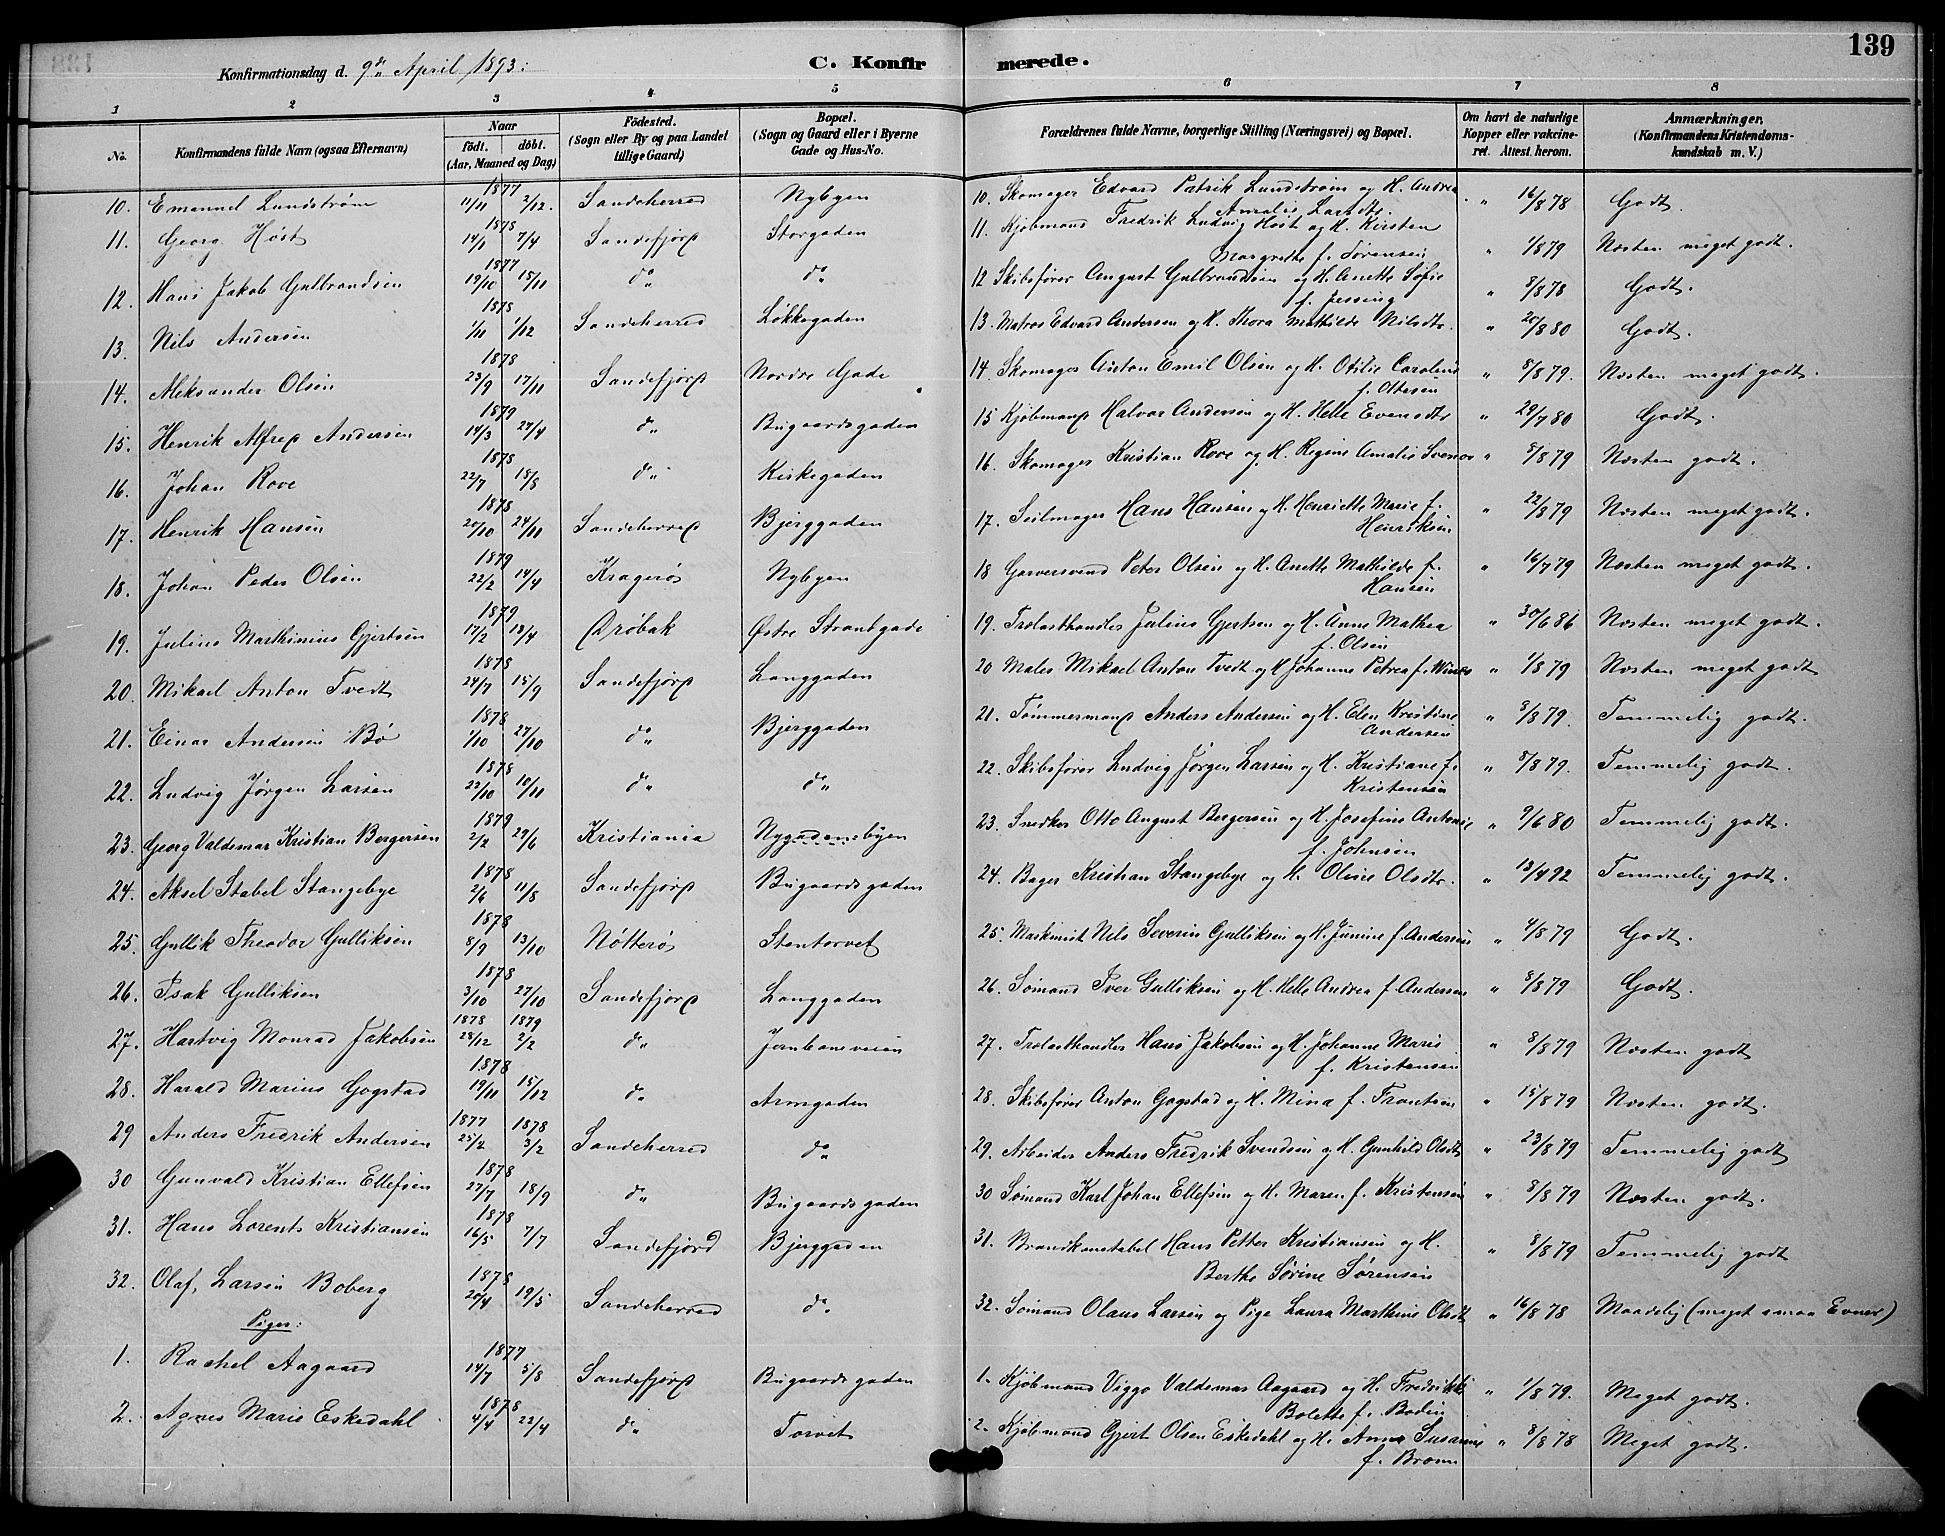 139
Konfirmationsdag d. 9de April 1893:
C. Konfirmerede.
1 2 3 4 5 6 7 8
No. Konfirmandens fulde Navn (ogsaa Efternavn) Naar født. døbt. (Aar, Maaned og Dag) Fødested. (Sogn eller By og paa Landet tillige Gaard) Bopæl. (Sogn og Gaard eller i Byerne Gade og Hus-No. Forældrenes fulde Navne, borgerlige Stilling (Næringsvei) og Bopæl. Om havt de naturlige Kopper eller vakcineret. Attest. herom. Anmærkninger, (Konfirmandens Kristendomskundskab m. V.)
10. Emanuel Lundstrøm 1877 11/11 2/12. Sandeherred Nybyen 10. Skomager Edvard Patrik Lundstrøm og H. Andrea Amalie Larsdtr. " 16/8 78 Godt.
11. Georg Høst 1878 14/1 7/4 Sandefjord Storgaden 11. Kjøbmand Fredrik Ludvig Høst og H. Kirsten Margrethe f. Sørensen " 1/8 79 Næsten meget godt.
12. Hans Jakob Gulbrandsen 1877 19/10 18/11 do do 12 Skibsfører August Gulbrandsen og H. Anette Sofie f. Jessing " 8/8 78 Godt.
13. Nils Andersen 1878 1/11 1/12 Sandeherred Løkkegaden 13. Matros Edvard Andersen og H. Thora Mathilde Nilsdtr. " 20/8 80 Godt.
14. Aleksander Olsen 1878 23/9 17/11 Sandefjord Nordre Gade 14. Skomager Anton Emil Olsen og H. Otilie Caroline f. Ottesen " 8/8 79. Næsten meget godt.
15. Henrik Alfred Andersen 1879 14/3 24/4 do Bugaardsgaden 15 Kjøbmand Halvor Andersen og H. Helle Evensdtr " 29/7 80 Godt.
16. Johan Rove 1878 22/7 18/8 do Kirkegaden 16. Skomager Kristian Rove og H. Regine Amalie " 8/8 79 Næsten godt.
17. Henrik Hansen 1878 20/10 24/11 Sandeherred Bjerggaden 17. Seilmager Hans Hansen og H. Henriette Marie f. Henriksen " 22/8 79 Næsten meget godt.
18. Johan Peder Olsen 1879 22/2 14/4 Kragerø Nybyen 18 Garversvend Peter Olsen og H. Anette Mathilde f. Hansen " 16/7 79 Næsten meget godt.
19. Julius Marthinius Gjertsen 1879 17/2 18/4 Drøbak Østre Strantgade 19. Trælasthandler Julius Gjertsen og H. Anne Mathea f. Olsen " 30/6 86 Næsten meget godt.
20. Mikael Anton Tvedt 1878 24/7 15/9 Sandefjord Langgaden 20 Maler Mikael Anton Tvedt og H Johanne Petrea f. " 1/8 79 Næsten meget godt
21. Einar Andersen Bø 1878 1/10 27/10 do Bjerggaden 21. Tømmermand Anders Andersen og H. Elen Kristine Andersen " 8/8 79. Temmelig godt.
22. Ludvig Jørgen Larsen 1878 22/10 10/11 do do 22. Skibsfører Ludvig Jørgen Larsen og H. Kristiane f. Kristensen " 8/8 79. Temmelig godt.
23. Georg Valdemar Kristian Bergersen 1879 2/2 29/6 Kristiania Nygadensbyen 23. Snedker Otto August Bergersen og H. Josefine Antonie f. Johnsen " 9/6 80 Temmelig godt.
24. Aksel Stabel Stangebye 1878 2/6 11/8 Sandefjord Bugaardsgaden 24. Bager Kristian Stangebye og H. Oline Olsdtr. " 13/4 92 Temmelig godt.
25. Gullik Theodor Gulliksen 1878 8/9 13/10 Nøtterø Stentorvet 25. Maskinist Nils Severin Gulliksen og H. Jumine f. Andersen " 4/8 79 Godt.
26. Isak Gulliksen 1878 3/10 27/10 Sandefjord Langgaden 26. Sømand Iver Gulliksen og H. Helle Andrea f. Andersen " 8/8 79 Godt.
27. Hartvig Monrad Jakobsen 1878 28/12 1879 2/2 do Jernbaneveien 27. Trælasthandler Hans Jakobsen og H. Johanne Marie f. Kristensen " 8/8 79 Næsten godt
28. Harald Marius Gogstad 1878 19/11 15/12 do Armgaden 28. Skibsfører Anton Gogstad og H. Mina f. Frantsen " 15/8 79 Næsten godt.
29 Anders Fredrik Andersen 1877 25/2 1878 3/2 Sandeherred do 29. Arbeider Anders Fredrik Svendsen og H. Gunhild Olsdtr " 23/8 79 Temmelig godt
30 Gunvald Kristian Ellefsen 1878 27/7 18/9 do Bugaardsgaden 30 Sømand Karl Johan Ellefsen og H. Maren f. Kristensen " 8/8 79 Næsten godt.
31. Hans Lorents Kristiansen 1878 16/5 7/7 Sandefjord Bjerggaden 31. Brandkonstabel Hans Petter Kristiansen og H. Berthe Sørine Sørensen " 8/8 79 Temmelig godt
32. Olaf, Larsen Boberg 1878 20/4 19/5 Sandeherred do 32. Sømand Olaus Larsen og Pige Laura Marthine Olsdt " 16/8 78 Maadelig (meget smaa Evner)
Piger:
1. Rachel Aagaard 1877 14/7 5/8 Sandefjord Bugaardsgaden 1. Kjøbmand Viggo Valdemar Aagaard og H. Fredrikke Bolette f. Bodin " 1/8 79. Meget godt.
2. Agnes Marie Eskedahl 1878 4/4 22/4 do Torvet 2. Kjøbmand Gjert Olsen Eskedahl og H. Anne Susanne f. Bromn " 8/8 78 Meget godt.